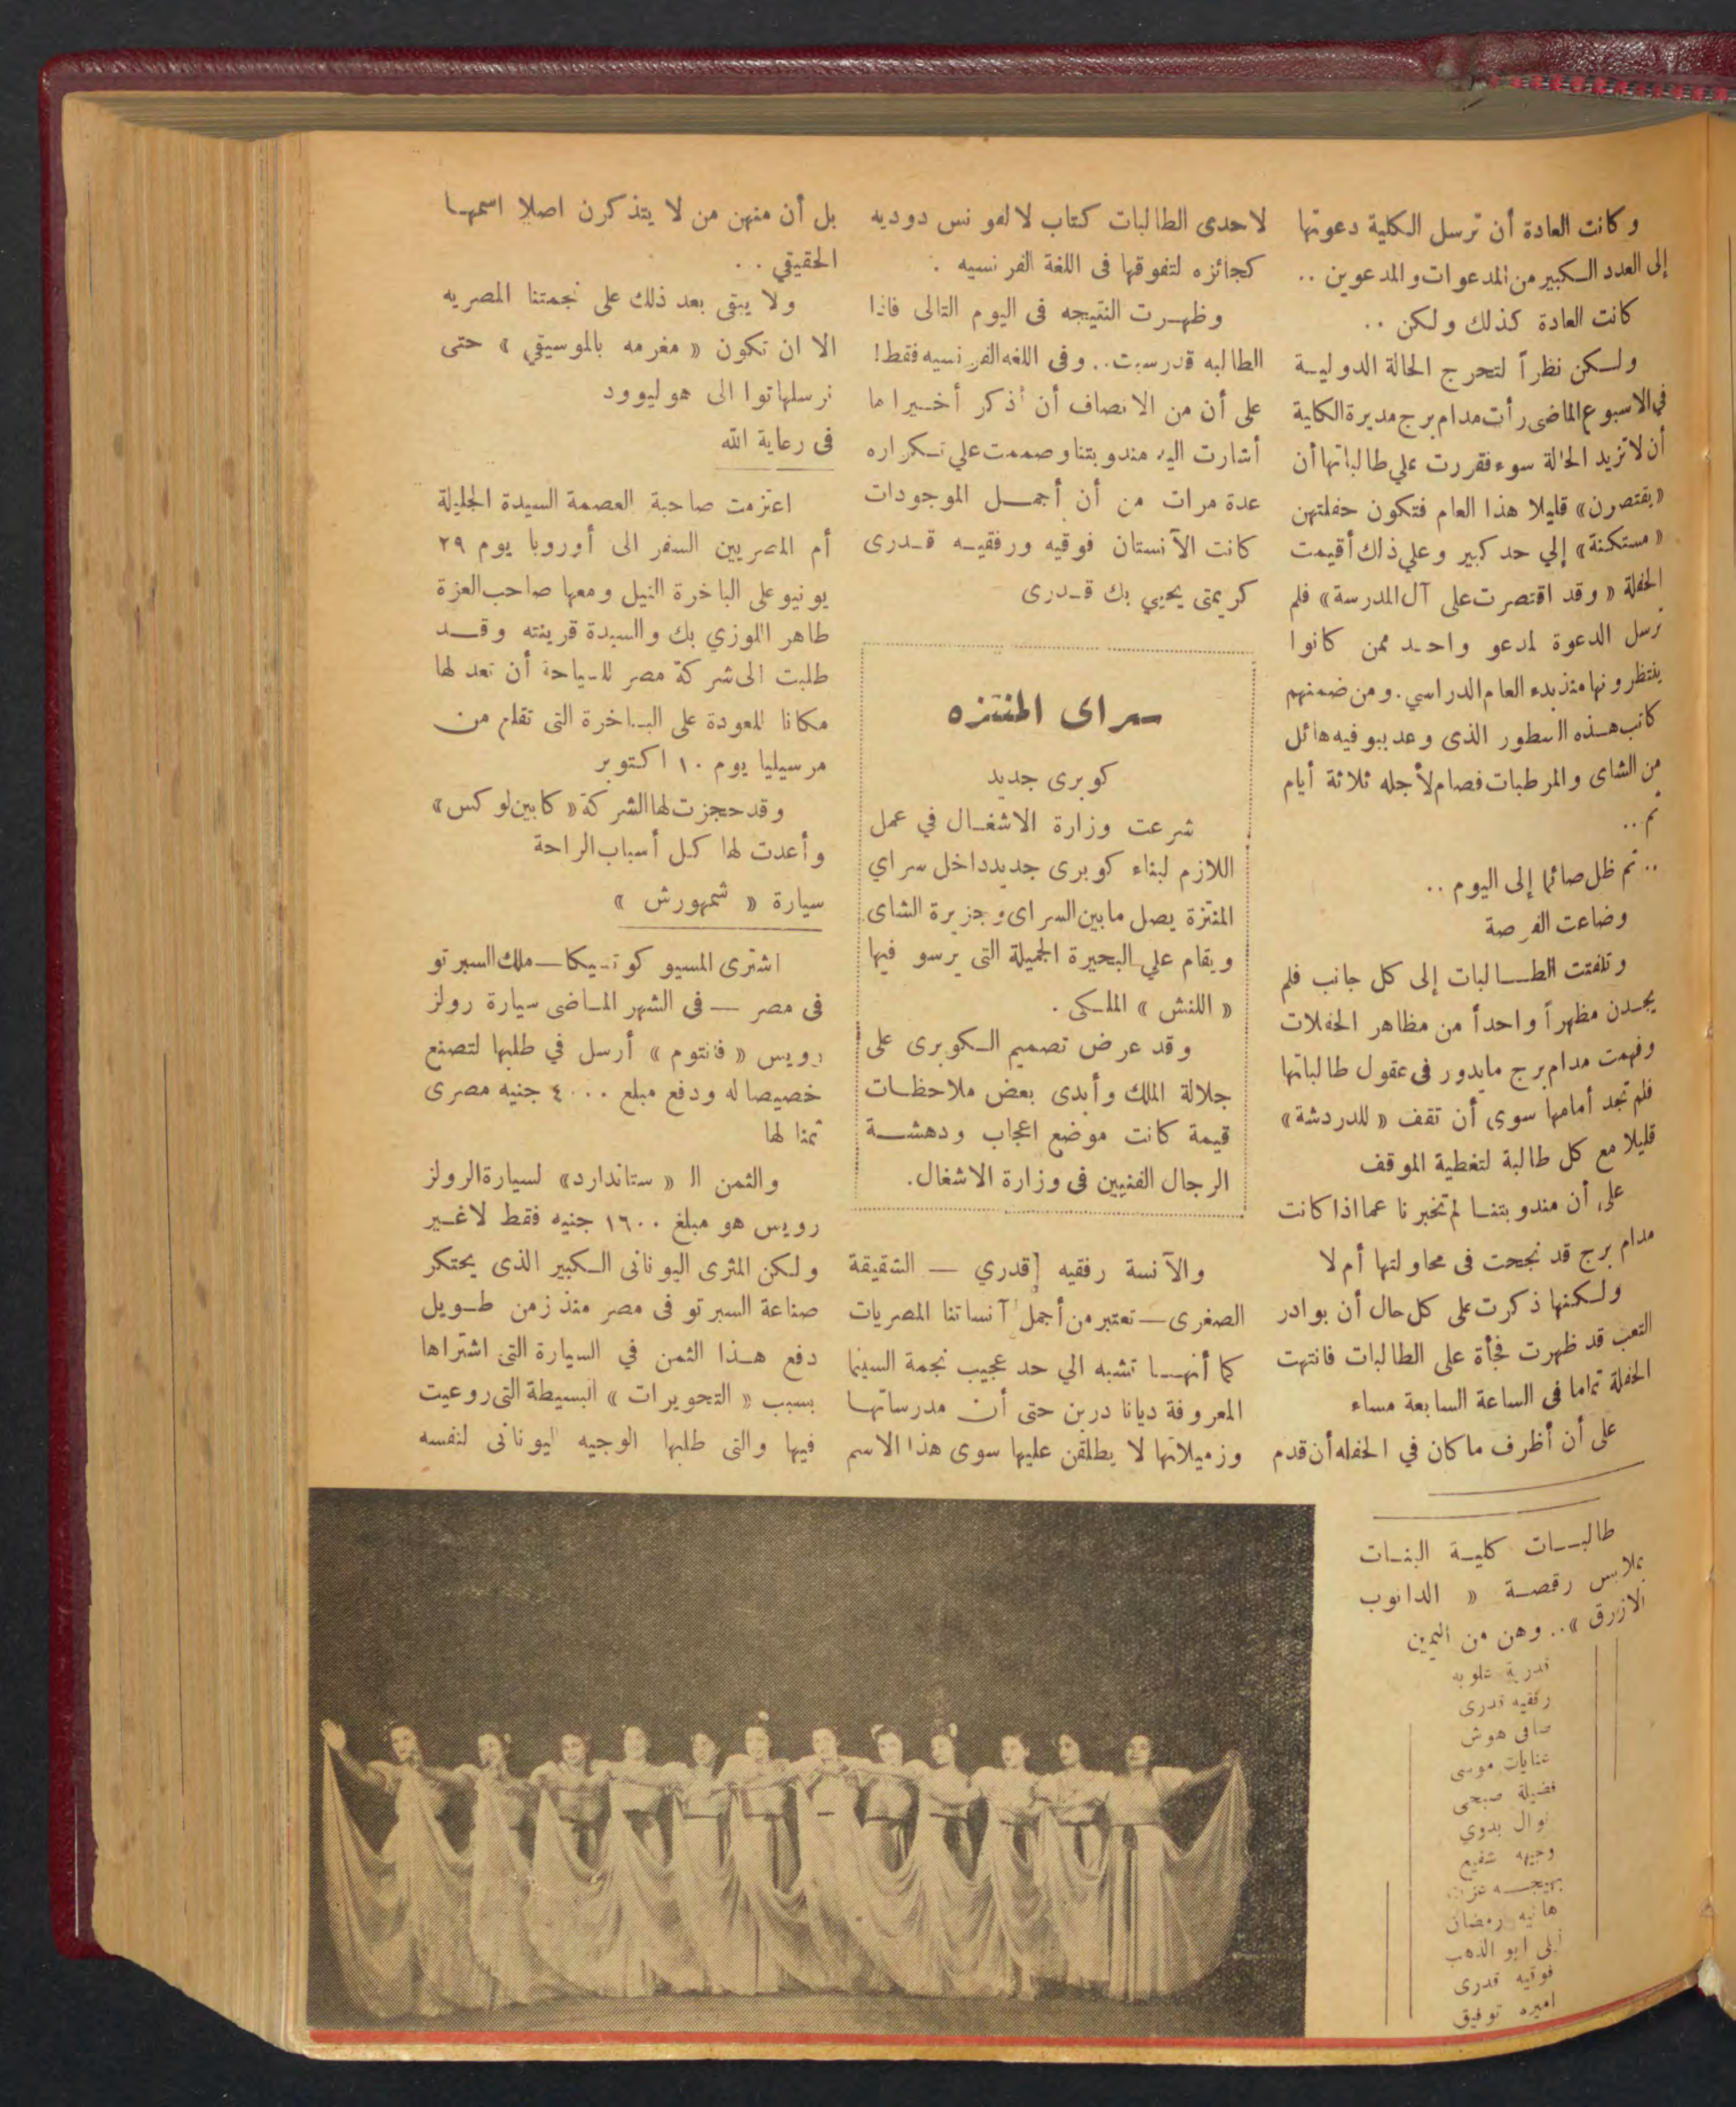 وكانت العادة أن ترسل الكلية دعوتها
إلى العدد الكبير من المدعوات والمدعوين ..
كانت العادة كذلك ولكن ..
ولكن نظراً لتحرج الحالة الدولية
في الاسبوع الماضى رأت مدام برج مديرة الكلية
أن لا تزيد الحالة سوء فقررت علي طالباتها أن
«يقتصرن» قليلا هذا العام فتكون حفلتهن
«مستكنة» إلي حد كبير وعلي ذلك أقيمت
الحفلة «وقد اقتصرت على آل المدرسة» فلم
ترسل الدعوة لمدعو واحد ممن كانوا
ينتظرونها منذ بدء العام الدراسي. ومن ضمنهم
كاتب هذه السطور الذى وعد ببوفيه هائل
من الشاى والمرطبات فصام لأجله ثلاثة أيام
ثم ..
.. ثم ظل صائما إلى اليوم ..
وضاعت الفرصة
وتلفتت الطالبات إلى كل جانب فلم
يجدن مظهراً واحداً من مظاهر الحفلات
وفهمت مدام برج مايدور فى عقول طالباتها
فلم تجد أمامها سوى أن تقف «للدردشة»
قليلا مع كل طالبة لتغطية الموقف
على أن مندوبتنا لم تخبرنا عما اذا كانت
مدام برج قد نجحت فى محاولتها أم لا
ولكنها ذكرت على كل حال أن بوادر
التعب قد ظهرت فجأة على الطالبات فانتهت
الحفلة تماما فى الساعة السابعة مساء
على أن أظرف ماكان في الحفله أن قدم
لاحدى الطالبات كتاب لالفونس دوديه
كجائزه لتفوقها فى اللغة الفرنسيه .
وظهرت النتيجه فى اليوم التالى فاذا
الطالبه قد رسبت .. وفى اللغه الفرنسيه فقط!
على أن من الانصاف أن أذكر أخيرا ما
أشارت اليه مندوبتنا وصممت علي تكراره
عدة مرات من أن أجمل الموجودات
كانت الآنستان فوقيه ورفقيه قدرى
كريمتى يحيي بك قدرى
سراى المنتزه
كوبرى جديد
شرعت وزارة الاشغال في عمل
اللازم لبناء كوبرى جديد داخل سراي
المنتزة يصل مابين السراى وجزيرة الشاى
ويقام علي البحيرة الجميلة التى يرسو فيها
« اللنش » الملكى .
وقد عرض تصميم الكوبرى على
جلالة الملك وأبدى بعض ملاحظات
قيمة كانت موضع اعجاب ودهشة
الرجال الفنيين فى وزارة الاشغال.
والآنسة رفقيه قدري — الشقيقة
الصغرى — تعتبر من أجمل آنساتنا المصريات
كما أنها تشبه الي حد عجيب نجمة السينما
المعروفة ديانا دربن حتى أن مدرساتها
وزميلاتها لا يطلقن عليها سوى هذا الاسم
بل أن منهن من لا يتذكرن اصلا اسمها
الحقيقي ..
ولا يبقى بعد ذلك على نجمتنا المصريه
الا ان تكون « مغرمه بالموسيقي » حتى
نرسلها توا الى هوليوود
فى رعاية الله
اعتزمت صاحبة العصمة السيدة الجليلة
أم المصريين السفر الى أوروبا يوم ٢٩
يونيو على الباخرة النيل ومعها صاحب العزة
طاهر اللوزي بك والسيدة قرينته وقد
طلبت الى شركة مصر للسياحة أن تعد لها
مكانا للعودة على الباخرة التى تقلع من
مرسيليا يوم ١٠ اكتوبر
وقد حجزت لها الشركة « كابين لوكس »
وأعدت لها كل أسباب الراحة
سيارة « شمهورش »
اشترى المسيو كوتسيكا — ملك السبرتو
فى مصر — فى الشهر الماضى سيارة رولز
رويس « فانتوم » أرسل في طلبها لتصنع
خصيصا له ودفع مبلغ ٤٠٠٠ جنيه مصرى
ثمنا لها
والثمن ال « ستاندارد» لسيارة الرولز
رويس هو مبلغ ١٦٠٠ جنيه فقط لاغير
ولكن المثرى اليونانى الكبير الذى يحتكر
صناعة السبرتو فى مصر منذ زمن طويل
دفع هذا الثمن في السيارة التى اشتراها
بسبب « التحويرات » البسيطة التى روعيت
فيها والتى طلبها الوجيه اليونانى لنفسه
طالبات كلية البنات
بملابس رقصة « الدانوب
الازرق » .. وهن من اليمين
قدرية علوبه
رفقيه قدرى
صافى هوش
عنايات موسى
فضيلة صبحى
نوال بدوي
وجيهه شفيع
بهيجه
هانيه رمضان
ابو الذهب
فوقيه قدرى
اميره توفيق